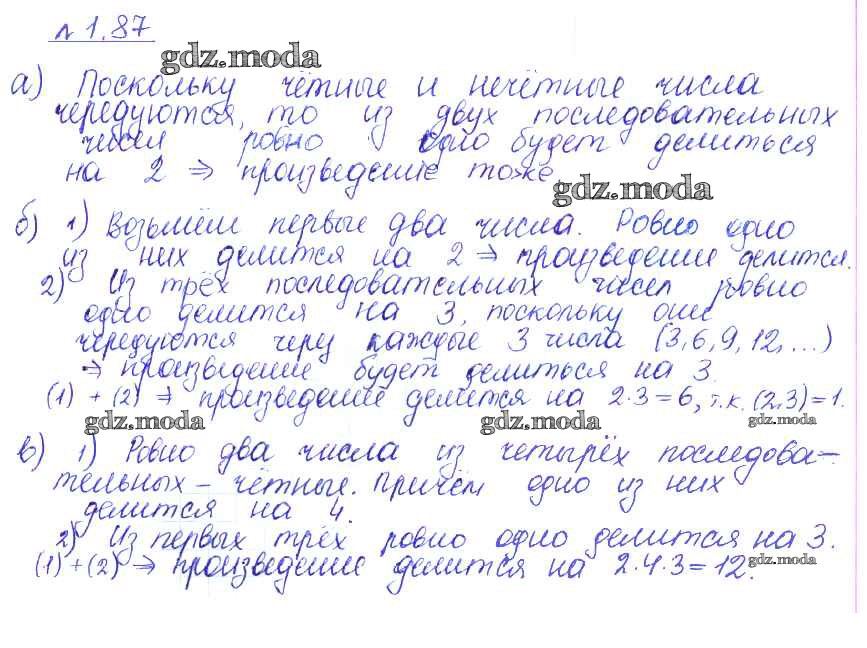 № 1.87
gdz.moda
а) Поскольку чётные и нечётные числа
чередуются, то из двух последовательных
чисел ровно одно будет делиться
на 2 ⇒ произведение тоже.
gdz.moda
б) 1) Возьмём первые два числа. Ровно одно
из них делится на 2 ⇒ произведение делится.
2) Из трёх последовательных чисел ровно
одно делится на 3, поскольку они
чередуются через каждые 3 числа (3, 6, 9, 12, ...)
⇒ произведение будет делиться на 3.
(1) + (2) ⇒ произведение делится на 2·3=6, т.к. (2,3)=1.
gdz.moda gdz.moda gdz.moda
в) 1) Ровно два числа из четырёх последова-
тельных – чётные. Причём одно из них
делится на 4.
2) Из первых трёх ровно одно делится на 3.
(1)+(2) ⇒ произведение делится на 2·4·3=12.
gdz.moda